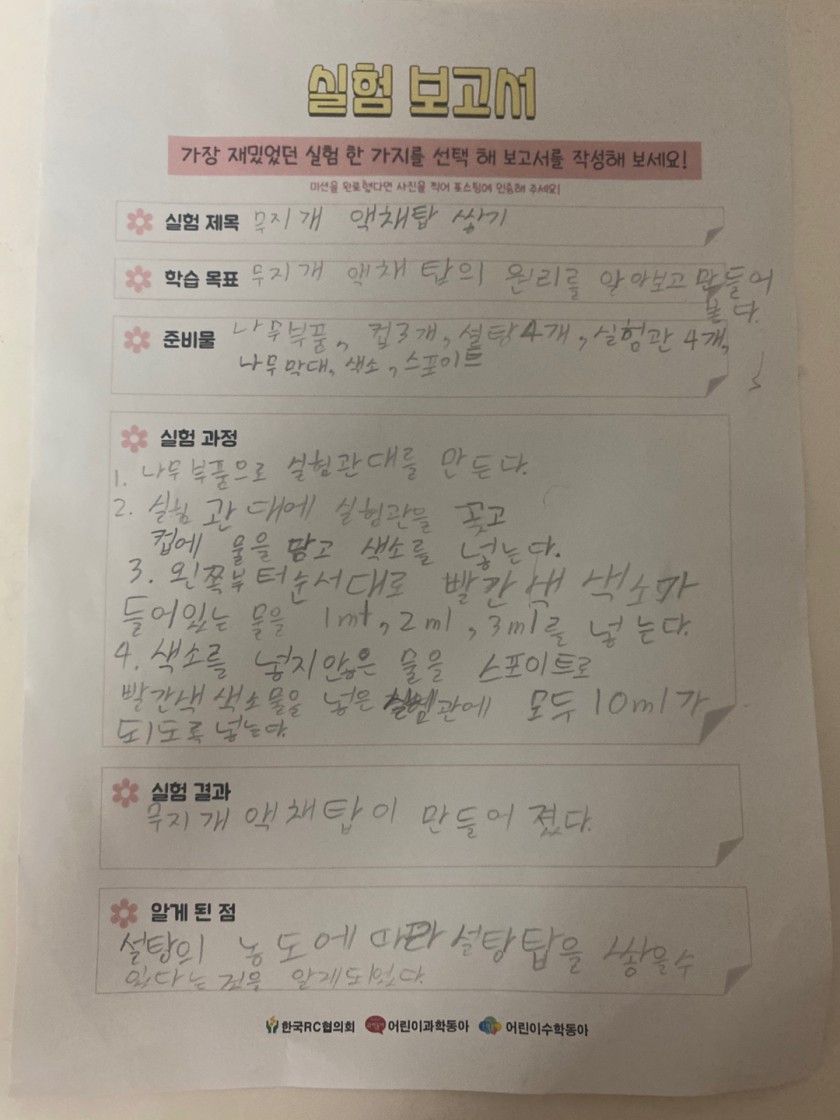 실험 보고서
가장 재밌었던 실험 한 가지를 선택 해 보고서를 작성해 보세요!
미션을 완료했다면 사진을 찍어 포스팅에 인증해 주세요!
실험 제목 무지개 액채탑 쌓기
학습 목표 무지개 액채 탑의 원리를 알아보고 만들어
본다.
준비물 나무부품, 컵3개, 설탕4개, 실험관 4개,
나무막대, 색소, 스포이트
실험 과정
1. 나무부품으로 실험관대를 만든다.
2. 실험 관 대에 실험관을 꽂고
컵에 물을 담고 색소를 넣는다.
3. 왼쪽부터순서대로 빨간색 색소가
들어있는 물을 1ml, 2ml, 3ml를 넣는다.
4. 색소를 넣지않은 물을 스포이트로
빨간색 색소물을 넣은 실험관에 모두 10ml가
되도록 넣는다
실험 결과
무지개 액채탑이 만들어 졌다.
알게 된 점
설탕의 농도에 따라 설탕탑을 쌓을수
있다는 것을 알게되었다.
한국RC협의회 어린이과학동아 어린이수학동아